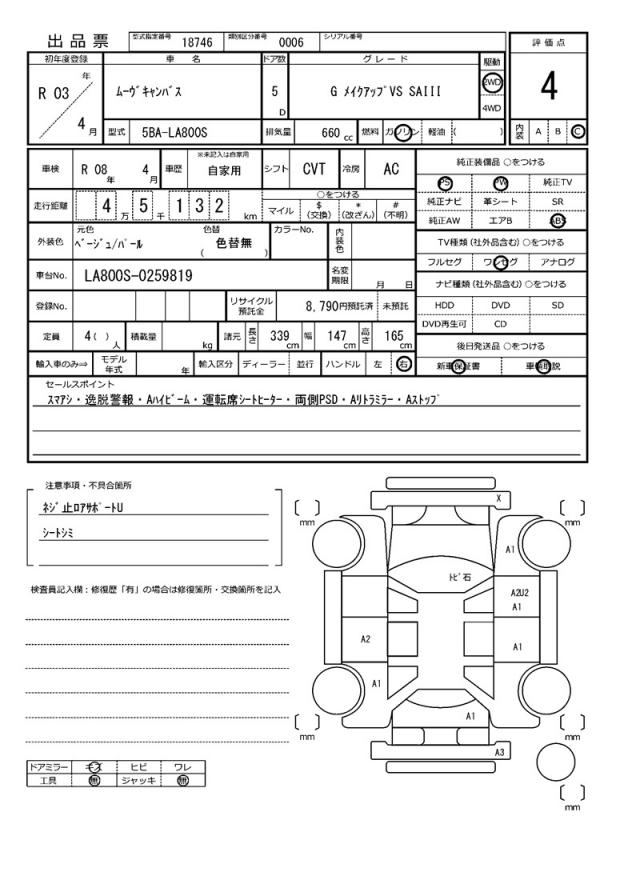 出品票 型式指定番号 18746 類別区分番号 0006 シリアル番号
初年度登録 車名 ドア数 グレード 駆動 評価点
R 03 年 4 月 ムーヴキャンバス 5 D G メイクアップVS SAIII 2WD 4WD 4
型式 5BA-LA800S 排気量 660 cc 燃料 ガソリン 軽油 ( ) 内装 A B C
車検 R 08 年 4 月 車歴 ※未記入は自家用 自家用 シフト CVT 冷房 AC 純正装備品 ○をつける
PS PW 純正TV
走行距離 4 万 5 千 1 3 2 km ○をつける マイル $ (交換) * (改ざん) # (不明)
純正ナビ 革シート SR
純正AW エアB ABS
外装色 元色 ベージュ/パール 色替 色替無 ( ) カラーNo. 内装色
TV種類 (社外品含む) ○をつける
フルセグ ワンセグ アナログ
車台No. LA800S-0259819 名変期限 月 日
ナビ種類 (社外品含む) ○をつける
登録No. リサイクル預託金 8,790円預託済 未預託
HDD DVD SD
DVD再生可 CD
定員 4 ( ) 人 積載量 kg 諸元 長さ 339 cm 幅 147 cm 高さ 165 cm
後日発送品 ○をつける
輸入車のみ⇒ モデル年式 年 輸入区分 ディーラー 並行 ハンドル 左 右
新車保証書 車輌取説
セールスポイント
スマアシ・逸脱警報・Aハイビーム・運転席シートヒーター・両側PSD・Aリトラミラー・Aストップ
注意事項・不具合箇所
ネジ止ロアサポートU
シートシミ
検査員記入欄：修復歴「有」の場合は修復箇所・交換箇所を記入
X
mm mm
A1
トビ石
A2U2
A1
A2 A1
A1
A1
mm mm
A3
mm
ドアミラー キズ ヒビ ワレ
工具 無 ジャッキ 無